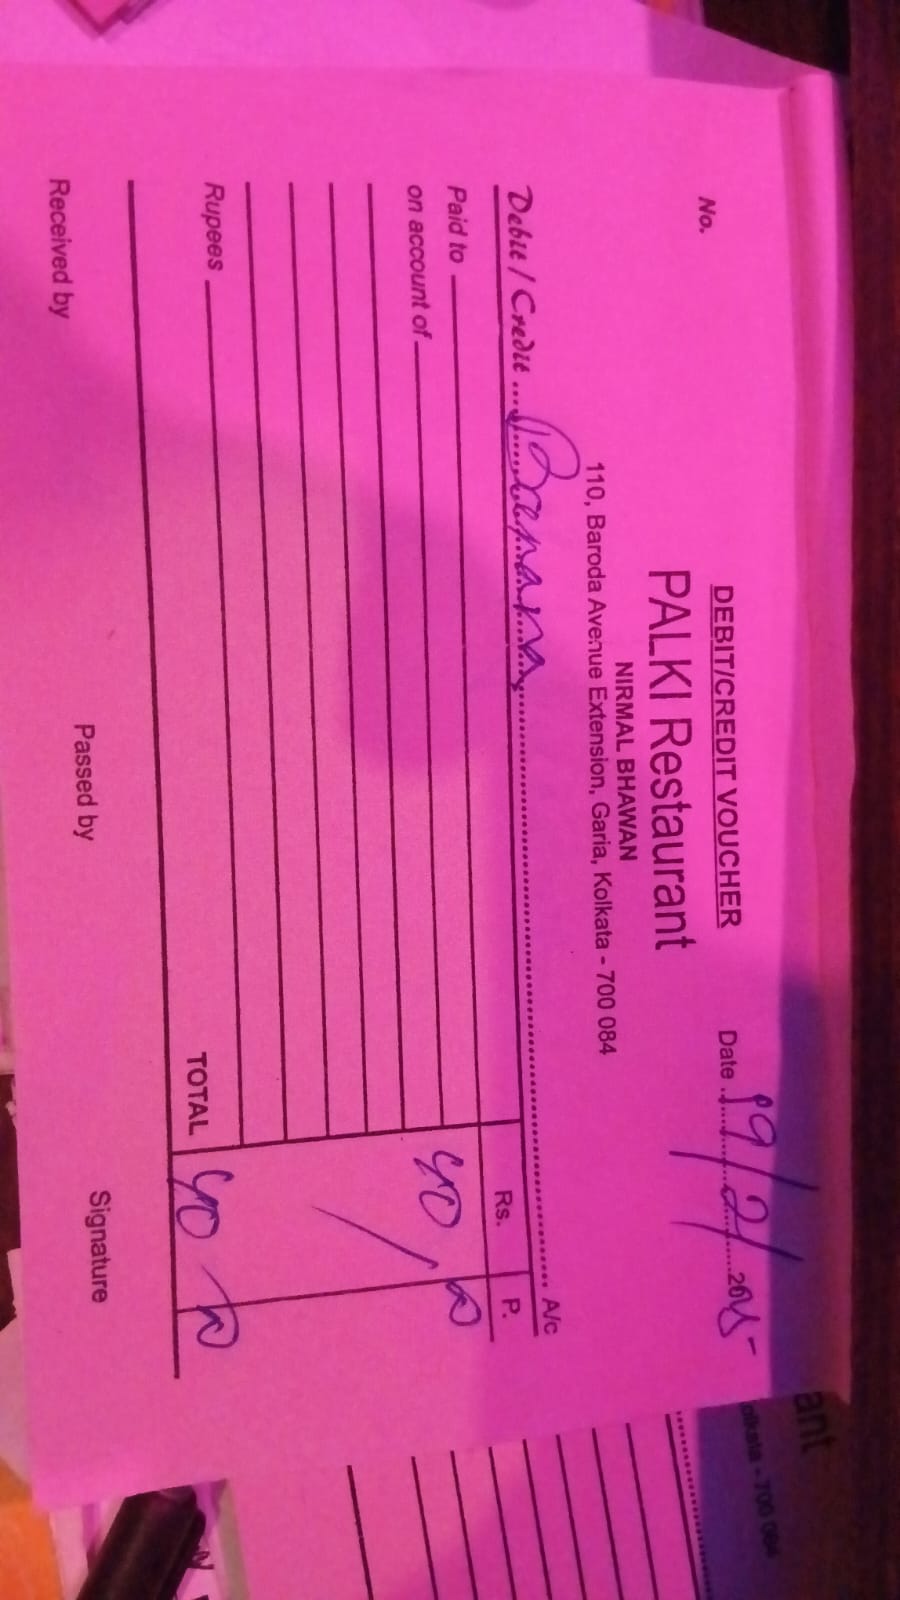 DEBIT/CREDIT VOUCHER
No.
Date 19/2/2025
PALKI Restaurant
NIRMAL BHAWAN
110, Baroda Avenue Extension, Garia, Kolkata - 700 084
Debit / Credit A/c
Rs. P.
Paid to 40
on account of
Rupees
TOTAL 40
Received by Passed by Signature
ant
olkata - 700 084